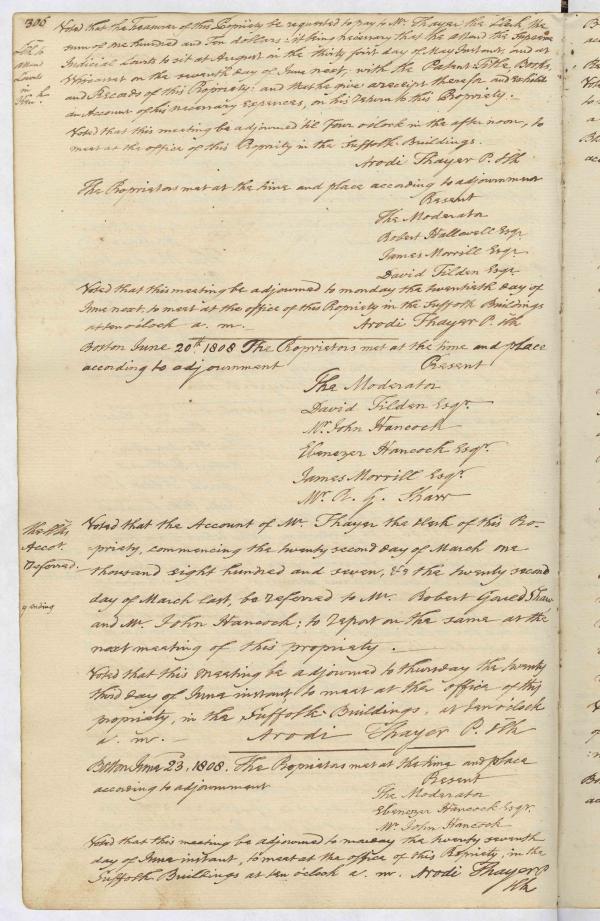 306
Voted that the Treasurer of this Propriety be requested to pay to Mr. Thayer the Clerk, the
sum of one hundred and Ten dollars: it being necessary that he attend the Supreme
Judicial Courts to sit at August in the thirty first day of May Instant, and at
Wiscasset on the seventh day of June next, with the Patent Title, Books,
and Records of this Propriety: and that he give a receipt therefor and exhibit
an Account of his necessary expences, on his return to this Propriety.
attend
Courts
in
Voted that this meeting be adjourned til Four o'clock in the afternoon, to
meet at the office of this Propriety in the Suffolk Buildings.
Arodi Thayer P. Clk
The Proprietors met at the time and place according to adjournment
Present
The Moderator
Robert Hallowell Esqr.
James Morrill Esqr.
David Tilden Esqr.
Voted that this meeting be adjourned to monday the twentieth day of
June next, to meet at the office of this Propriety in the Suffolk Buildings
at ten o'clock a. m.
Arodi Thayer P. Clk
Boston June 20th 1808 The Proprietors met at the time and place
according to adjournment
Present
The Moderator
David Tilden Esqr.
Mr. John Hancock
Ebenezer Hancock Esqr.
James Morrill Esqr.
Mr. R. G. Shaw
the Clks
Accot.
Referred.
Voted that the Account of Mr. Thayer the Clerk of this Pro-
priety, commencing the twenty second day of March one
thousand eight hundred and seven, & the twenty second
day of March last, be referred to Mr. Robert Gould Shaw
y ending
and Mr. John Hancock; to report on the same at the
next meeting of this propriety.
Voted that this meeting be adjourned to thursday the twenty
third day of June instant, to meet at the office of this
propriety, in the Suffolk Buildings, at ten o'clock
a. m. Arodi Thayer P. Clk
Boston June 23. 1808. The Proprietors met at the time and place
according to adjournment
Present
The Moderator
Ebenezer Hancock Esqr.
Mr. John Hancock
Voted that this meeting be adjourned to the twenty seventh
day of June instant, to meet at the office of this Propriety, in the
Suffolk Buildings at ten o'clock a. m. Arodi Thayer P.
Clk